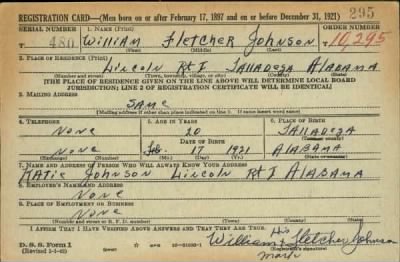 REGISTRATION CARD—(Men born on or after February 17, 1897 and on or before December 31, 1921) 295
SERIAL NUMBER 1. NAME (Print) ORDER NUMBER
T 480 William Fletcher Johnson 10,295
(First) (Middle) (Last)
2. PLACE OF RESIDENCE (Print)
Lincoln Rt I Talladega Alabama
(Number and street) (Town, township, village, or city) (County) (State)
[THE PLACE OF RESIDENCE GIVEN ON THE LINE ABOVE WILL DETERMINE LOCAL BOARD
JURISDICTION; LINE 2 OF REGISTRATION CERTIFICATE WILL BE IDENTICAL]
3. MAILING ADDRESS
Same
[Mailing address if other than place indicated on line 2. If same insert word same]
4. TELEPHONE 5. AGE IN YEARS 6. PLACE OF BIRTH
None 20 Talladega
DATE OF BIRTH
None Feb. 17 1921 Alabama
(Exchange) (Number) (Mo.) (Day) (Yr.)
7. NAME AND ADDRESS OF PERSON WHO WILL ALWAYS KNOW YOUR ADDRESS
Katie Johnson Lincoln Rt I Alabama
8. EMPLOYER'S NAME AND ADDRESS
None
9. PLACE OF EMPLOYMENT OR BUSINESS
None
(Number and street or R. F. D. number) (Town) (County) (State)
I AFFIRM THAT I HAVE VERIFIED ABOVE ANSWERS AND THAT THEY ARE TRUE.
His
William Fletcher Johnson
Mark
D. S. S. Form 1
(Revised 1-1-42)